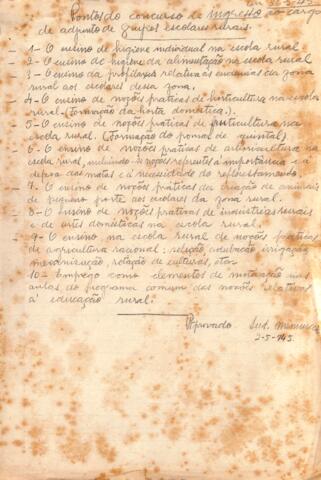 Pontos do concurso de ingresso ao cargo
de adjunto de grupos escolares rurais.
1- O ensino de higiene individual na escola rural
2- O ensino de higiene da alimentação na escola rural
3- O ensino da profilaxia relativa às endemias da zona
rural aos escolares dessa zona.
4- O ensino de noções praticas de horticultura na escola
rural. (Formação da horta doméstica).
5- O ensino de noções praticas de fruticultura na
escola rural. (Formação do pomar de quintal).
6- O ensino de noções praticas de arboricultura na
escola rural, incluindo-se noções referentes à importância e a
defesa das matas e à necessidade do reflorestamento.
7- O ensino de noções práticas de criação de animais
de pequeno porte aos escolares da zona rural.
8- O ensino de noções práticas de industrias rurais
e de artes domésticas na escola rural.
9- O ensino na escola rural de noções práticas
de agricultura racional: adubação irrigação,
mecanização, rotação de culturas, etc.
10- Emprego como elementos de motivação nas
aulas do programa comum das noções relativas
à educação rural.
Aprovado. Sud.
2-5-945.